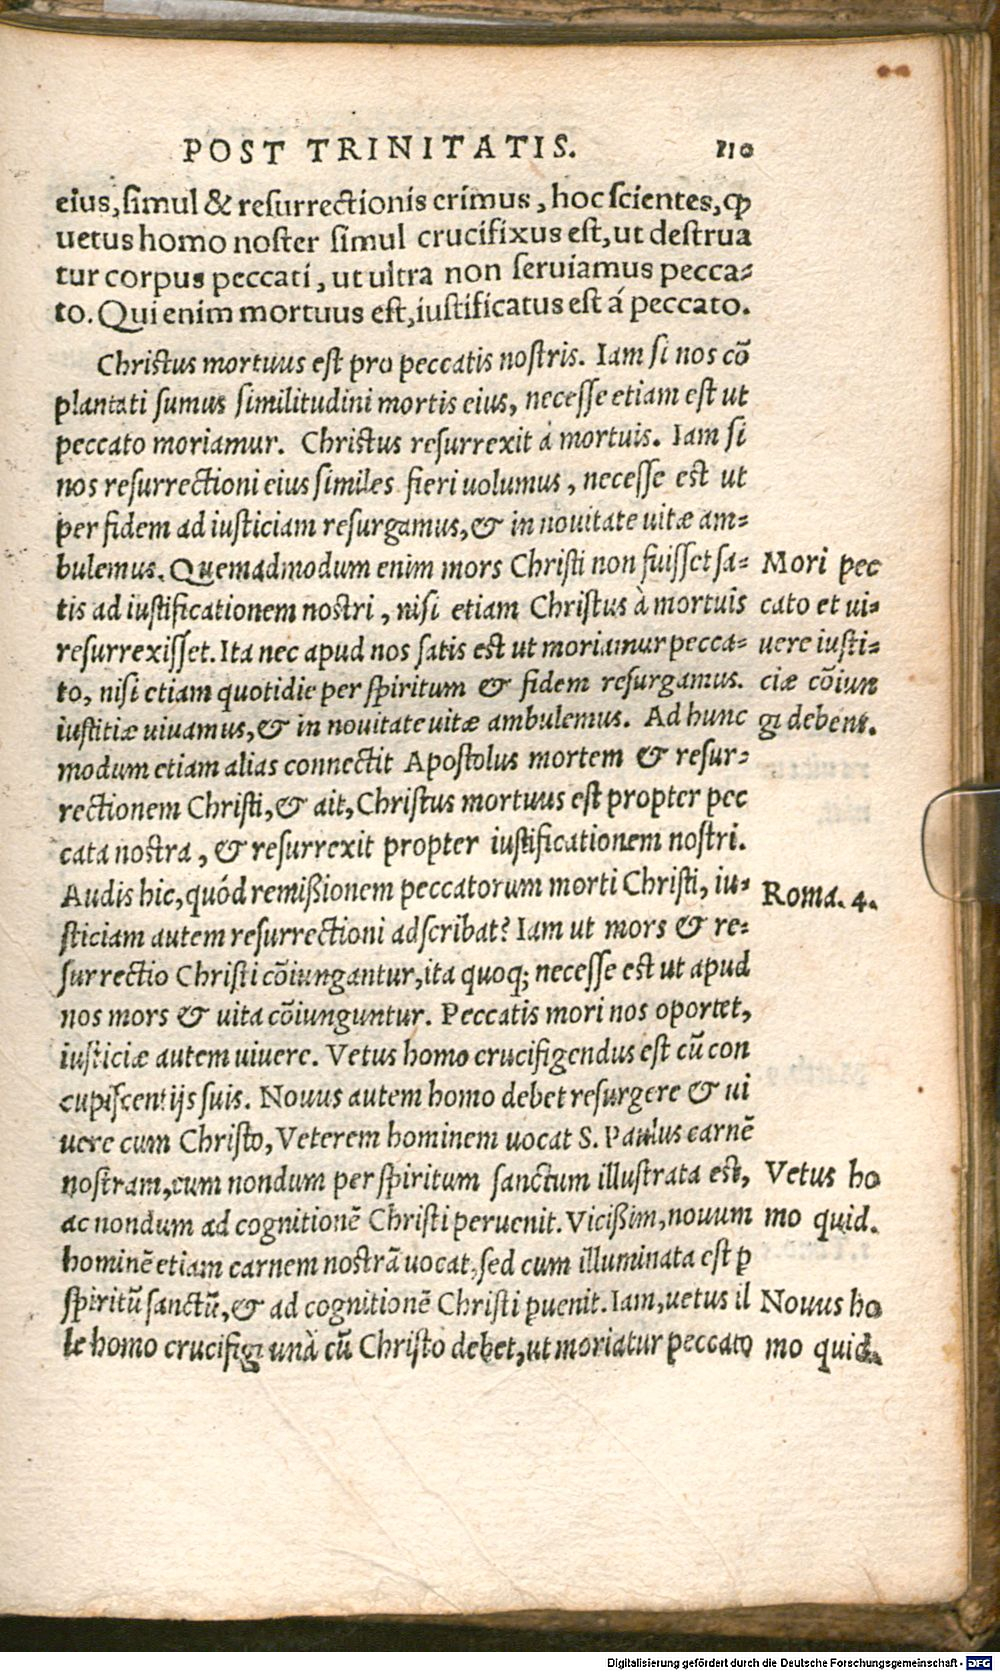 POST TRINITATIS. 110
eius, simul & resurrectionis erimus, hoc scientes, ꝙ
uetus homo noster simul crucifixus est, ut destrua
tur corpus peccati, ut ultra non seruiamus pecca-
to. Qui enim mortuus est, iustificatus est á peccato.
Christus mortuus est pro peccatis nostris. Iam si nos cõ
plantati sumus similitudini mortis eius, necesse etiam est ut
peccato moriamur. Christus resurrexit à mortuis. Iam si
nos resurrectioni eius similes fieri uolumus, necesse est ut
per fidem ad iusticiam resurgamus, & in nouitate uitæ am-
bulemus. Quemadmodum enim mors Christi non fuisset sa-
tis ad iustificationem nostri, nisi etiam Christus à mortuis
resurrexisset. Ita nec apud nos satis est ut moriamur pecca-
to, nisi etiam quotidie per spiritum & fidem resurgamus.
iustitiæ uiuamus, & in nouitate uitæ ambulemus. Ad hunc
modum etiam alias connectit Apostolus mortem & resur-
rectionem Christi, & ait, Christus mortuus est propter pec
cata nostra, & resurrexit propter iustificationem nostri.
Audis hic, quód remißionem peccatorum morti Christi, iu-
sticiam autem resurrectioni adscribat? Iam ut mors & re-
surrectio Christi cõiungantur, ita quoq; necesse est ut apud
nos mors & uita cõiunguntur. Peccatis mori nos oportet,
iusticiæ autem uiuere. Vetus homo crucifigendus est cũ con
cupiscentijs suis. Nouus autem homo debet resurgere & ui
uere cum Christo, Veterem hominem uocat S. Paulus carnẽ
nostram, cum nondum per spiritum sanctum illustrata est,
ac nondum ad cognitionẽ Christi peruenit. Vicißim, nouum
hominẽ etiam carnem nostrã uocat, sed cum illuminata est ꝑ
spiritũ sanctũ, & ad cognitionẽ Christi ꝑuenit. Iam, uetus il
le homo crucifigi unà cũ Christo debet, ut moriatur peccato
Mori pec
cato et ui-
uere iusti-
ciæ cõiun
gi debent.
Roma. 4.
Vetus ho
mo quid.
Nouus ho
mo quid.
Digitalisierung gefördert durch die Deutsche Forschungsgemeinschaft - DFG